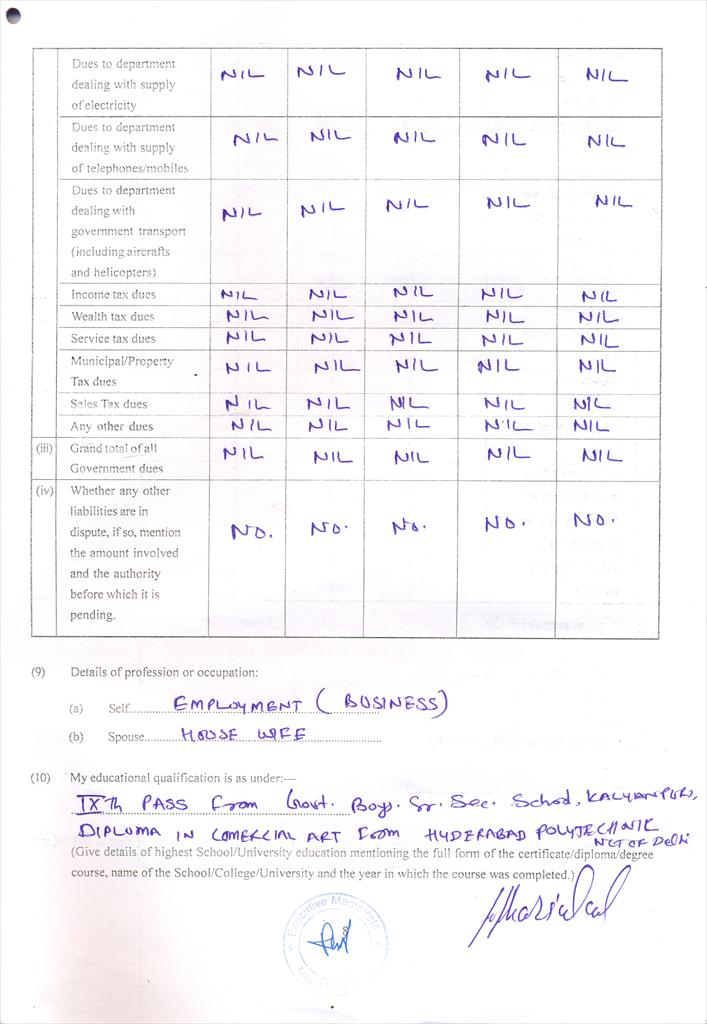 Dues to department
dealing with supply
of electricity
NIL NIL NIL NIL NIL
Dues to department
dealing with supply
of telephones/mobiles
NIL NIL NIL NIL NIL
Dues to department
dealing with
government transport
(including aircrafts
and helicopters)
NIL NIL NIL NIL NIL
Income tax dues NIL NIL NIL NIL NIL
Wealth tax dues NIL NIL NIL NIL NIL
Service tax dues NIL NIL NIL NIL NIL
Municipal/Property
Tax dues
NIL NIL NIL NIL NIL
Sales Tax dues NIL NIL NIL NIL NIL
Any other dues NIL NIL NIL NIL NIL
(iii) Grand total of all
Government dues
NIL NIL NIL NIL NIL
(iv) Whether any other
liabilities are in
dispute, if so, mention
the amount involved
and the authority
before which it is
pending.
No. No. No. No. No.
(9) Details of profession or occupation:
(a) Self EMPLOYMENT (BUSINESS)
(b) Spouse HOUSE WIFE
(10) My educational qualification is as under:—
IXth PASS from Govt. Boys. Sr. Sec. School, KALYANPURI,
DIPLOMA IN COMERCIAL ART FROM HYDERABAD POLYTECHNIC
NCT OF Delhi
(Give details of highest School/University education mentioning the full form of the certificate/diploma/degree
course, name of the School/College/University and the year in which the course was completed.)
Executive Magistrate